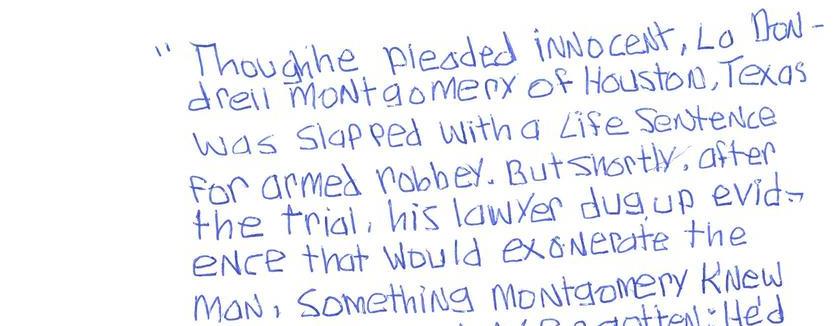 " Though he pleaded innocent, La Don-
drell Montgomery of Houston, Texas
was slapped with a Life Sentence
for armed robbey. But shortly, after
the trial, his lawyer dug up evid-
ence that would exonerate the
man, Something Montgomery Knew
gotten: He'd